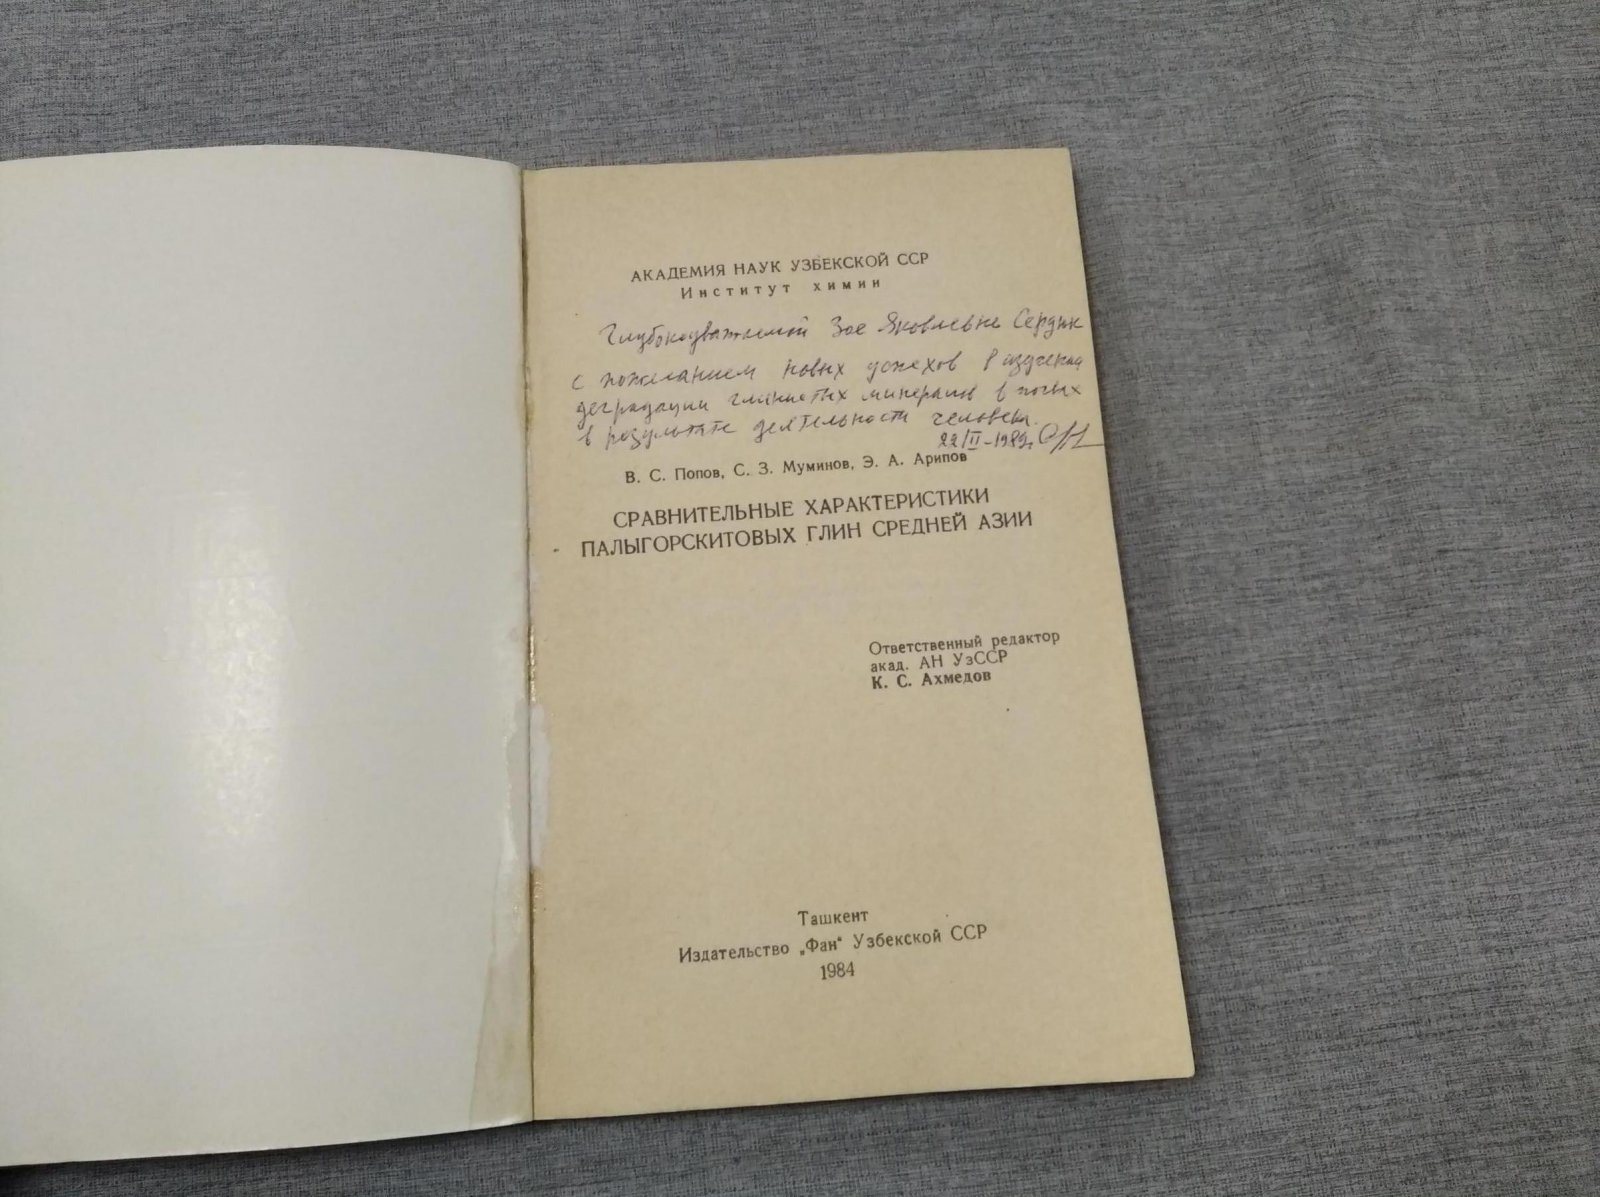 АКАДЕМИЯ НАУК УЗБЕКСКОЙ ССР
Институт химии
Глубокоуважаемой Зое Яковлевне Сердюк
с пожеланием новых успехов в изучении
деградации глинистых минералов в почвах
в результате деятельности человека.
22/II-1989г.
В. С. Попов, С. З. Муминов, Э. А. Арипов
СРАВНИТЕЛЬНЫЕ ХАРАКТЕРИСТИКИ
ПАЛЫГОРСКИТОВЫХ ГЛИН СРЕДНЕЙ АЗИИ
Ответственный редактор
акад. АН УзССР
К. С. Ахмедов
Ташкент
Издательство „Фан“ Узбекской ССР
1984